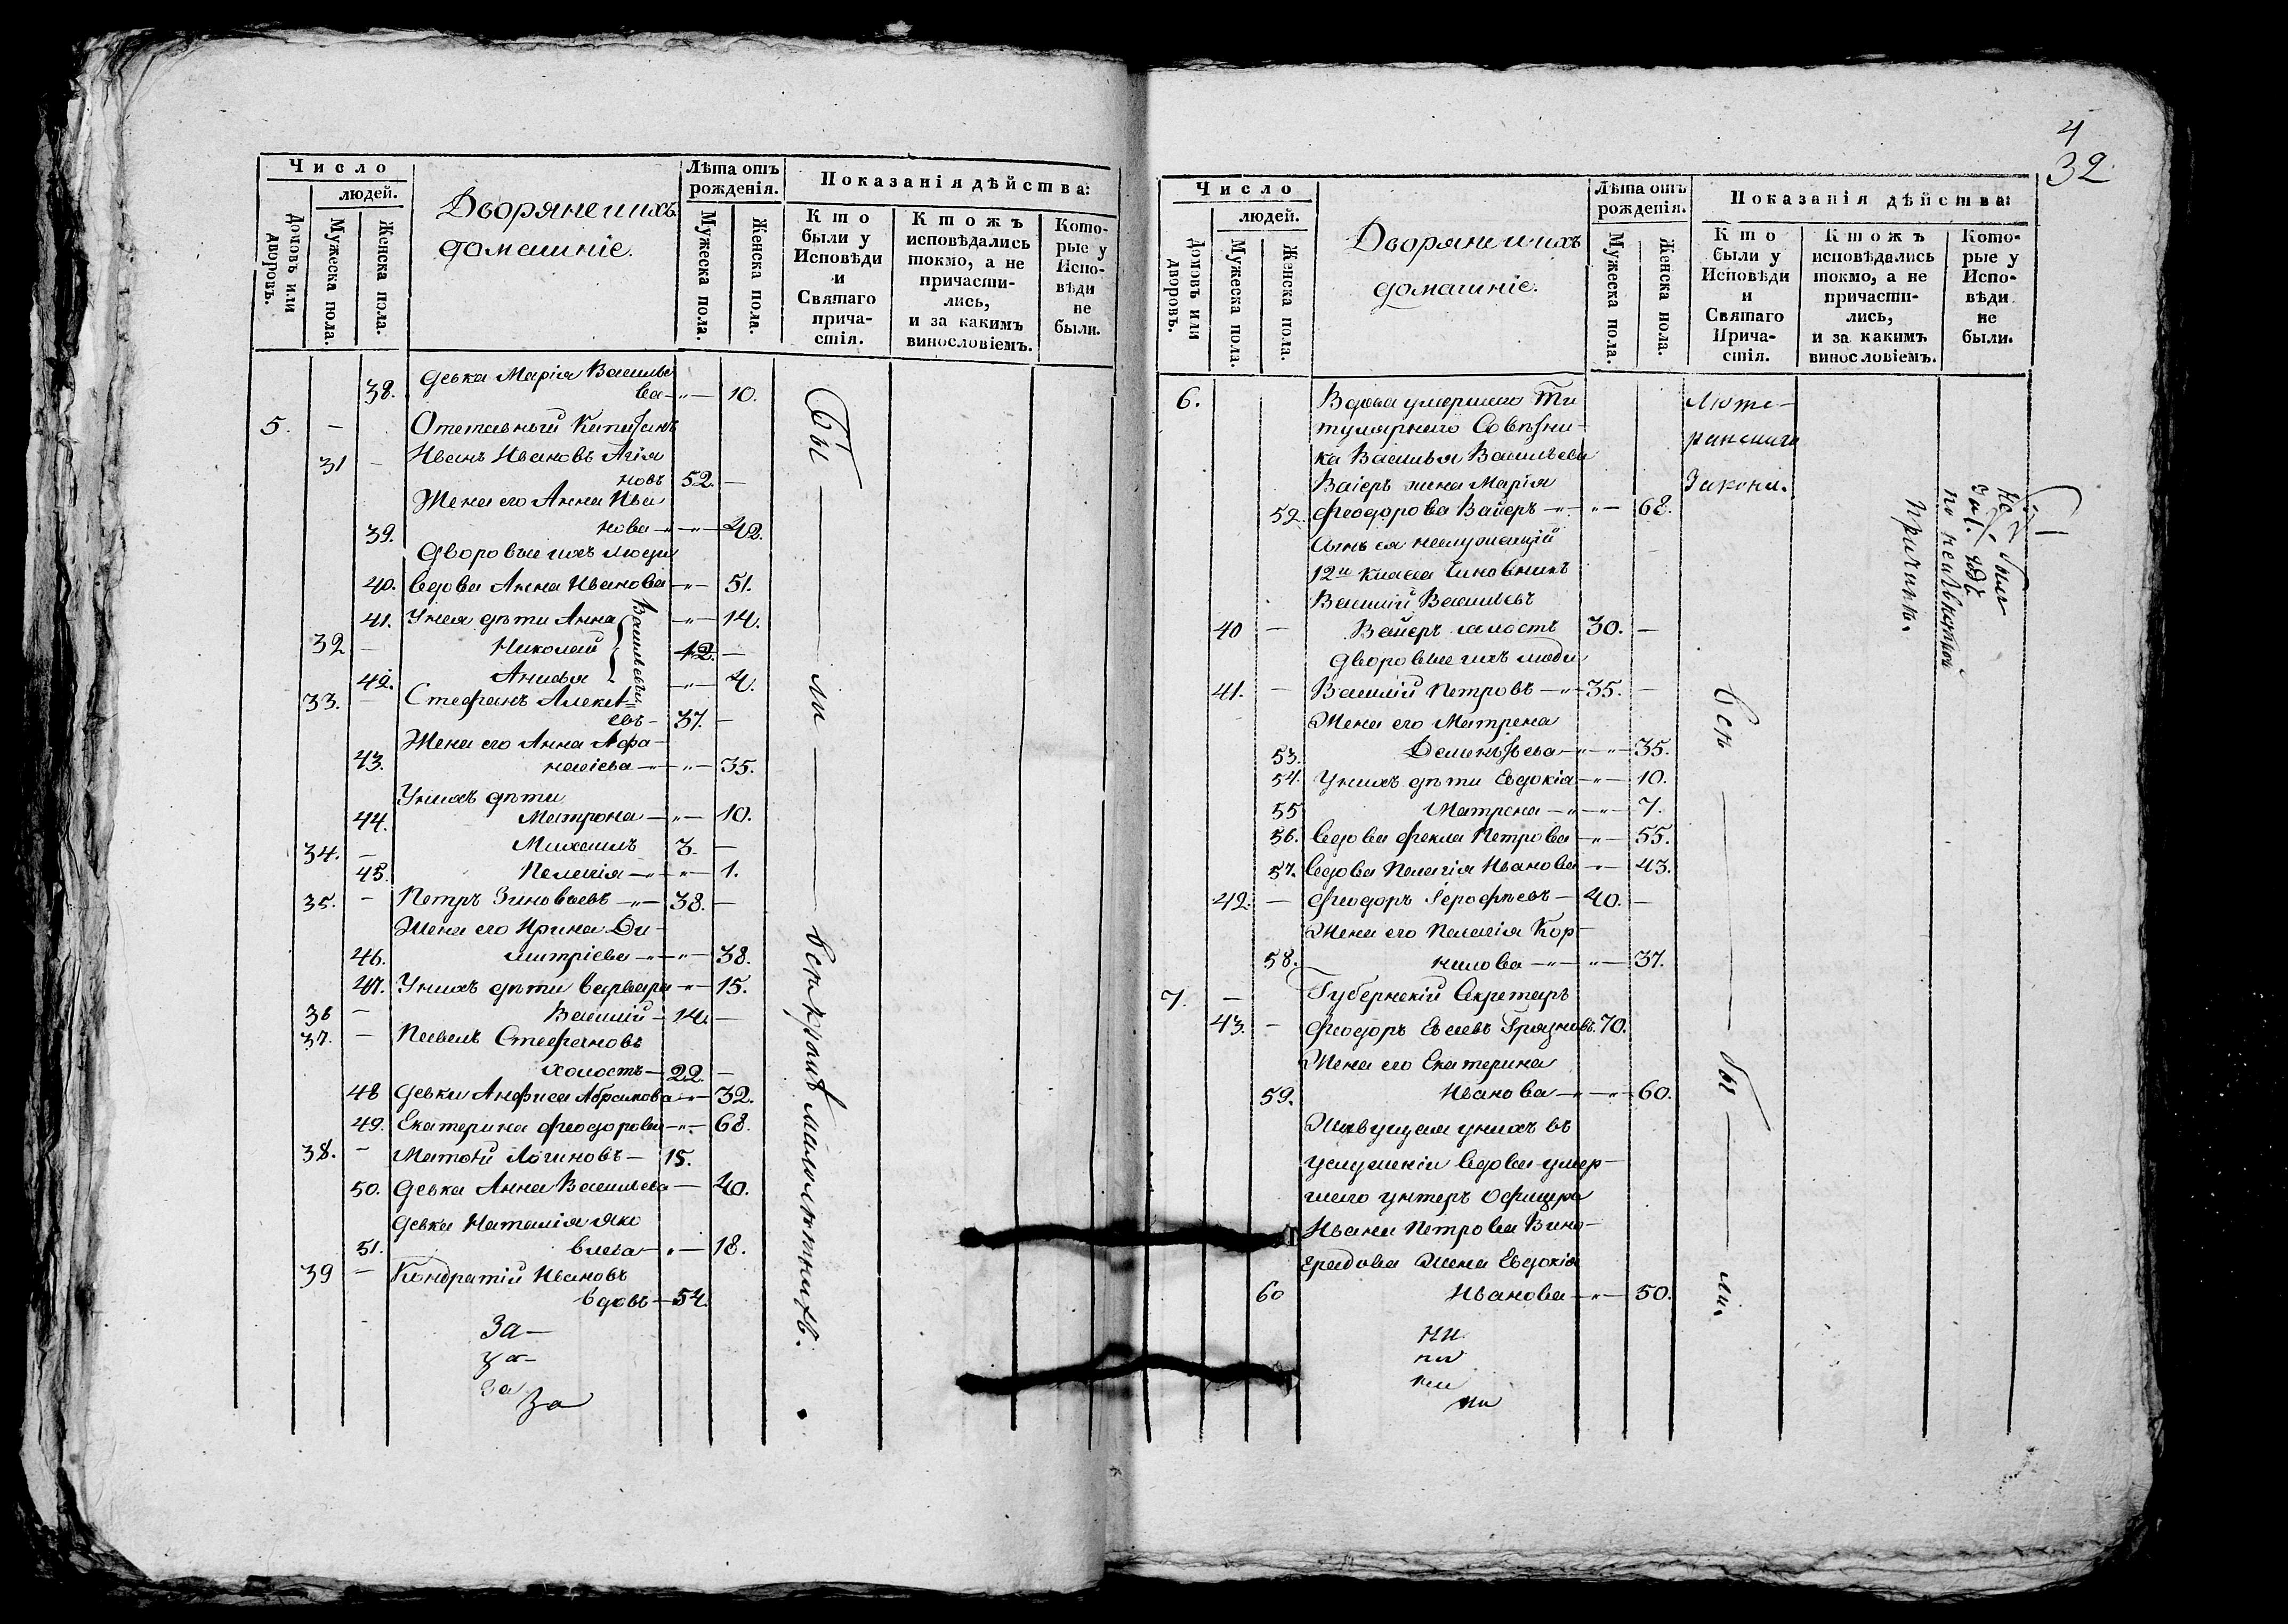 Число
людей.
Домовъ или дворовъ.
Мужеска пола.
Женска пола.
Дворяне и ихъ
домашніе.
Лѣта отъ
рожденія.
Мужеска пола.
Женска пола.
Показанія дѣйства:
Кто
были у
Исповѣди
и
Святаго
прича-
стія.
Ктожъ
исповѣдались
токмо, а не
причасти-
лись,
и за какимъ
винословіемъ.
Кото-
рые у
Испо-
вѣди
не
были.
38. Девка Марія Василье
ва —„— 10.
5. — Отставный Капитанъ
31 — Иванъ Ивановъ
новъ 52. —
Жена его Анна Ива
39. нова —„— 42.
Дворовые ихъ люди
40. вдова Анна Иванова —„— 51.
41. У нея дѣти Анна —„— 14.
32 — Николай 12. —
42. Анисья —„— 4.
Васильевы
33. — Стефанъ Алексѣ=
евъ — 37. —
Жена его Анна Афа-
43. насіева —„— 35.
У нихъ дѣти
44. Матрона —„— 10.
34. — Михаилъ 3. —
45. Пелагія —„— 1.
35. — Петръ Зиновьевъ —„— 38. —
Жена его Ирина Ди-
46. митріева —„— 38.
47. У нихъ дѣти Варвара —„— 15.
36 — Василій — 14. —
37. — Павелъ Стефановъ
холостъ — 22. —
48 Девки Анфиса Абрамова —„— 32.
49. Екатерина Феодорова —„— 68.
38. — Матѳій Логиновъ — 15.
50. Девка Анна Васильева — 40.
Девка Наталія Яко
51. влева —„— 18.
39 — Кондратій Ивановъ
вдовъ — 54.
За-
за-
за
За
Бы — ли —
4
32
Число
людей.
Домовъ или дворовъ.
Мужеска пола.
Женска пола.
Дворяне и ихъ
домашніе.
Лѣта отъ
рожденія.
Мужеска пола.
Женска пола.
Показанія дѣйства:
Кто
были у
Исповѣди
и
Святаго
Прича-
стія.
Ктожъ
исповѣдались
токмо, а не
причасти-
лись,
и за какимъ
винословіемъ.
Кото-
рые у
Испо-
вѣди
не
были.
6. Вдова умершаго Ти
тулярнаго Совѣтни-
ка Василья Васильева
Вайеръ жена Марія
52. Феодорова Вайеръ —„— 68.
Сынъ ея неслужащій
12го класса Чиновникъ
Василій Васильевъ
40 — Вайеръ холостъ 30. —
Дворовые ихъ люди
41. — Василій Петровъ —„— 35. —
Жена его Матрена
53. Дементьева —„— 35.
54. У нихъ дѣти Евдокія —„— 10.
55 Матрена —„— 7.
56. вдова Фекла Петрова —„— 55.
57. вдова Пелагія Иванова —„— 43.
42. — Феодоръ Ерофѣевъ — 40. —
Жена его Пелагія Кор-
58. нилова —„— 37.
7. — Губернскій Секретарь
43. — Феодоръ Евсевъ Грязновъ. 70.
Жена его Екатерина
59. Иванова —„— 60.
Живущая у нихъ въ
услуженіи вдова умер-
шаго унтеръ Офицера
Ивана Петрова Вино-
градова Жена Евдокія
60 Иванова —„— 50.
ни
ни
ни
ни
Люте-
ранскаго
Закона.
Всѣ — бы — ли.
Не были
по неизвѣстной
причинѣ.